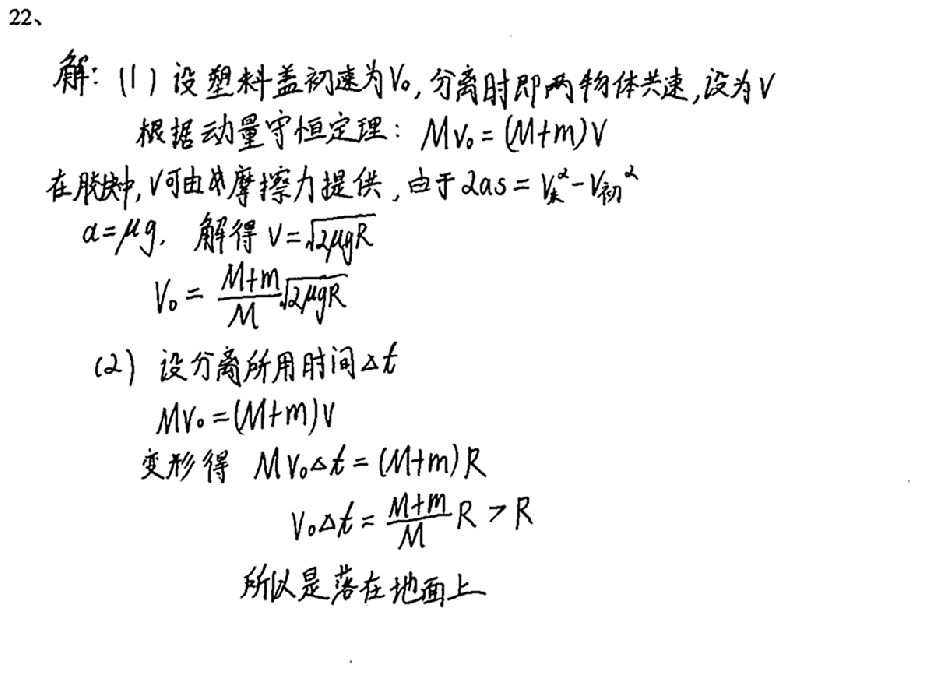 22、
解：(1) 设塑料盖初速为V₀，分离时即两物体共速，设为V
根据动量守恒定理：MV₀=(M+m)V
在脱中，V可由摩擦力提供，由于2as=V末²-V初²
a=μg. 解得 V=√2μgR
V₀= (M+m)/M √2μgR
(2) 设分离所用时间△t
MV₀=(M+m)V
变形得 MV₀△t=(M+m)R
V₀△t= (M+m)/M R > R
所以是落在地面上